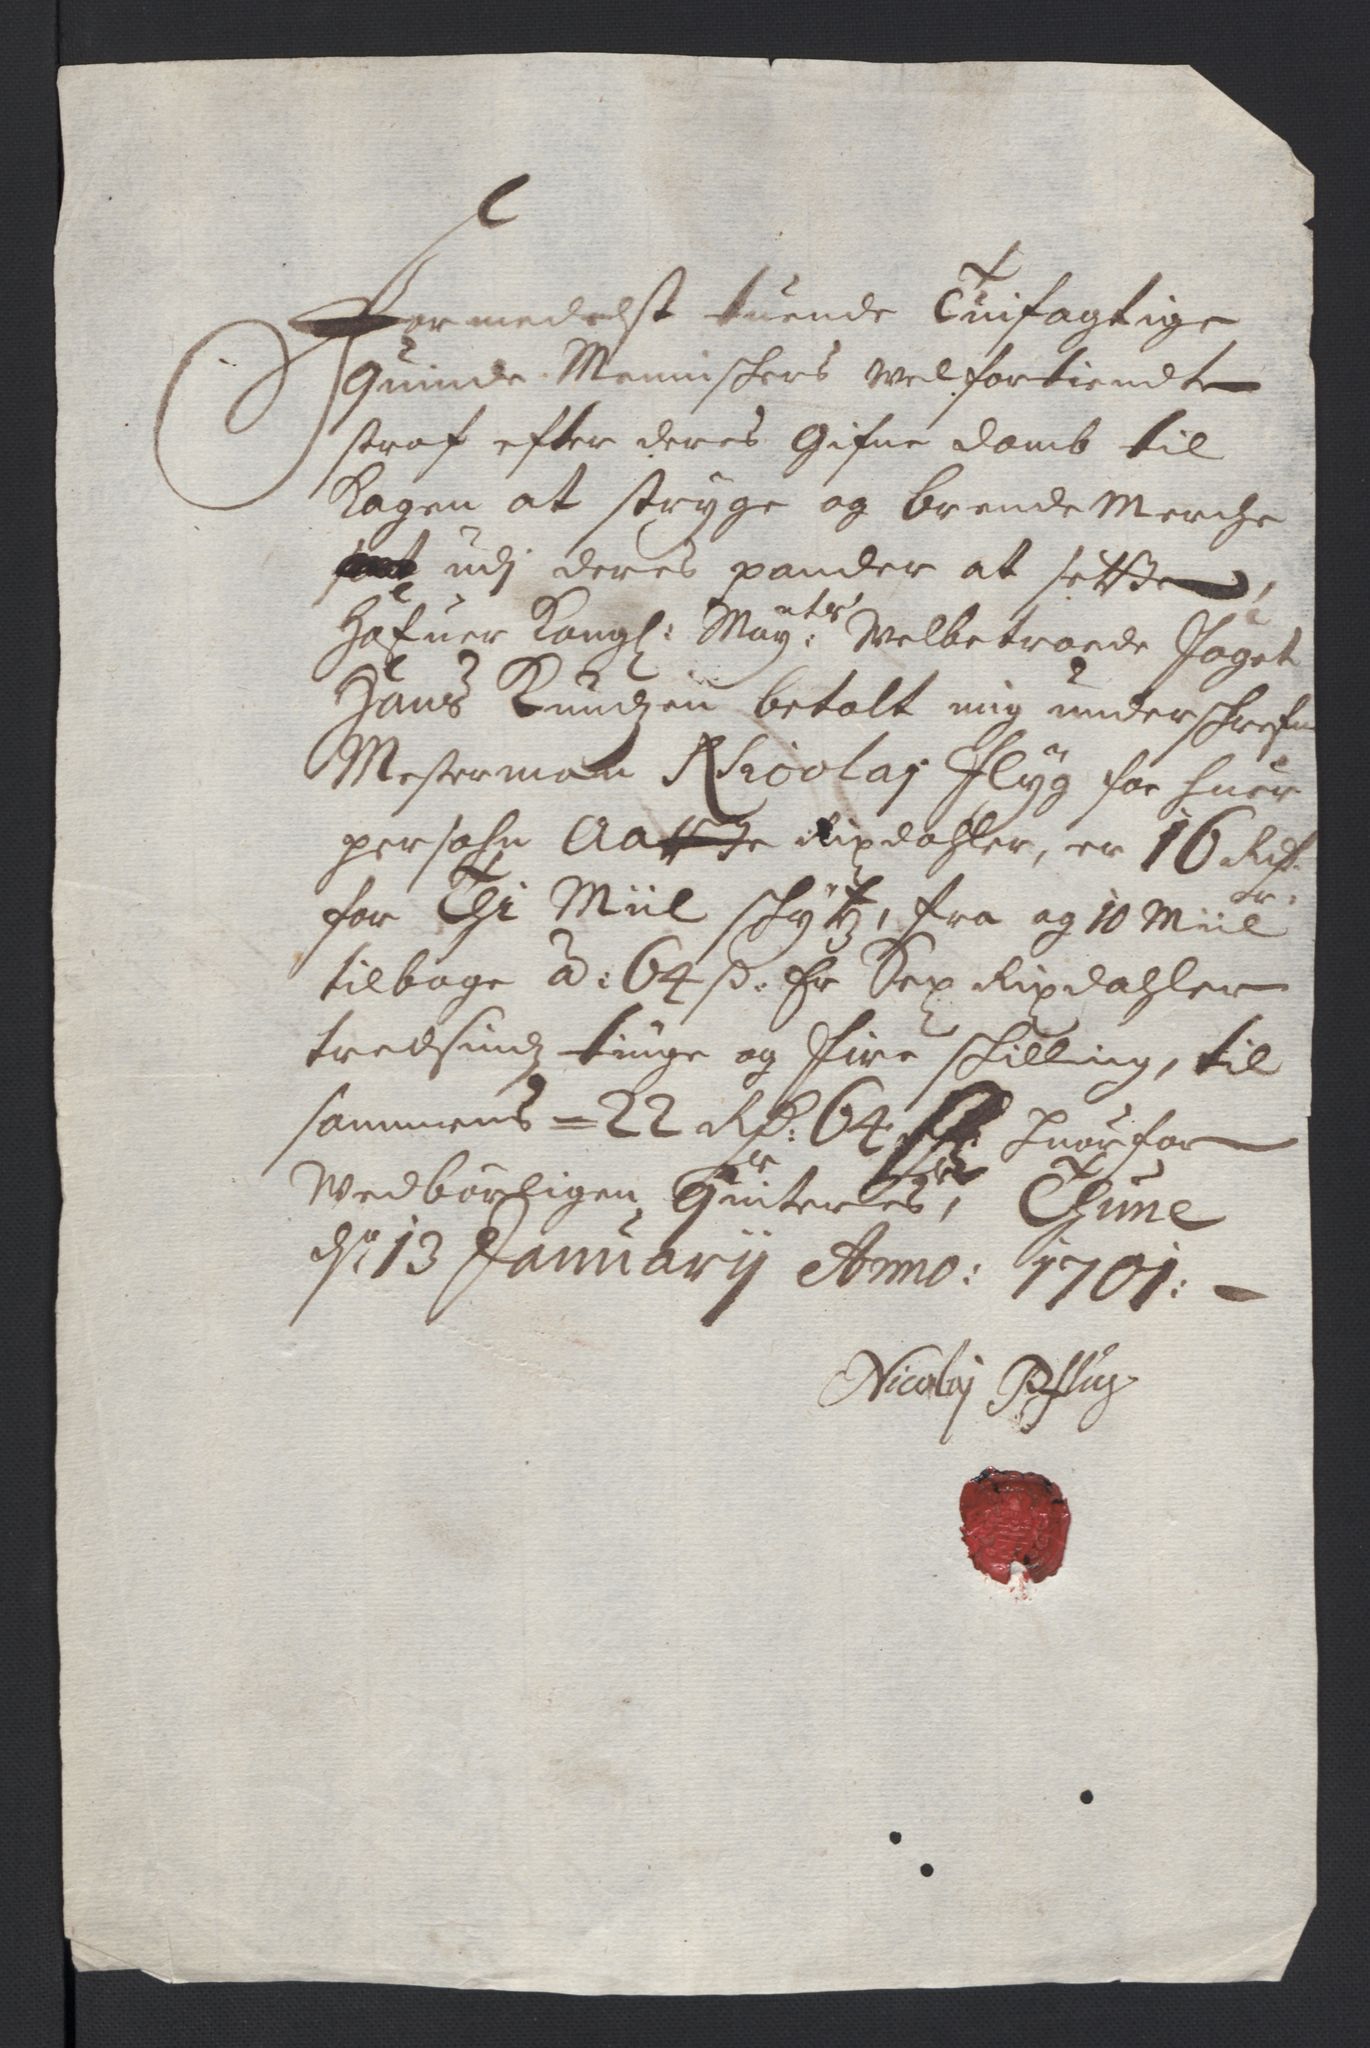 Formedelst tuende Tuifagtige
Quinde Mennischers velfortiendte
straf efter deres Gifne domb til
Kagen at stryge og brende Merche
udj deres pander at sette,
Hafuer Kongl: May:ts Welbetroede Foget
Hans Knudzen betalt mig underschrefne
Mesterman Nicolaj Flyg for huer
persohn Aatte Rixdahler, er 16 Rdr
for Thi Miil schytz, fra og 10 Miil
tilbage â: 64 s. er Sex Rixdahler
tredsindz tiuge og fire schilling, til
sammens = 22 Rdr: 64 s: huorfor
Wedbörligen Quiteres, Thune
dn 13 Januarij Anno: 1701:
Nicolaj Pflug